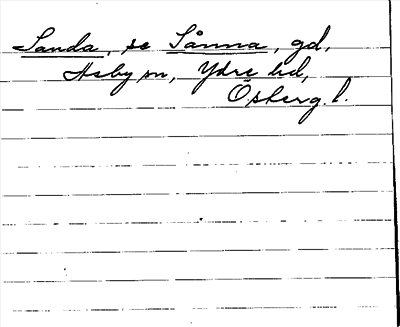 Sanda, se Sånna, gd,
Asby sn, Ydre hd,
Östergl.